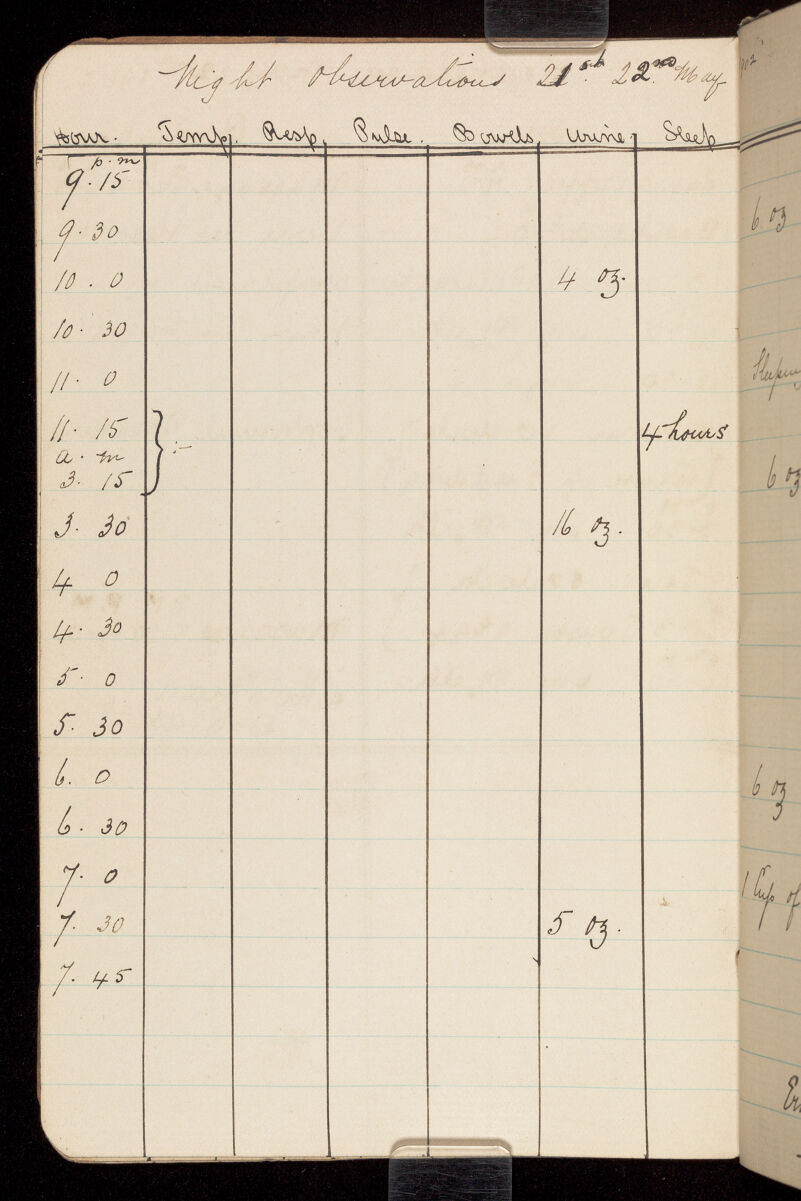 Night Observations 21st. 22nd. May
Hour. Temp. Resp. Pulse. Bowels. Urine. Sleep
p.m
9.15
9.30
10.0 4 oz.
10.30
11.0
11.15 } :- 4 hours
a.m
3.15
3.30 16 oz.
4 0
4.30
5.0
5.30
6.0
6.30
7.0
7.30 5 oz.
7.45
6 oz
6 oz
6 oz
1 Cup of